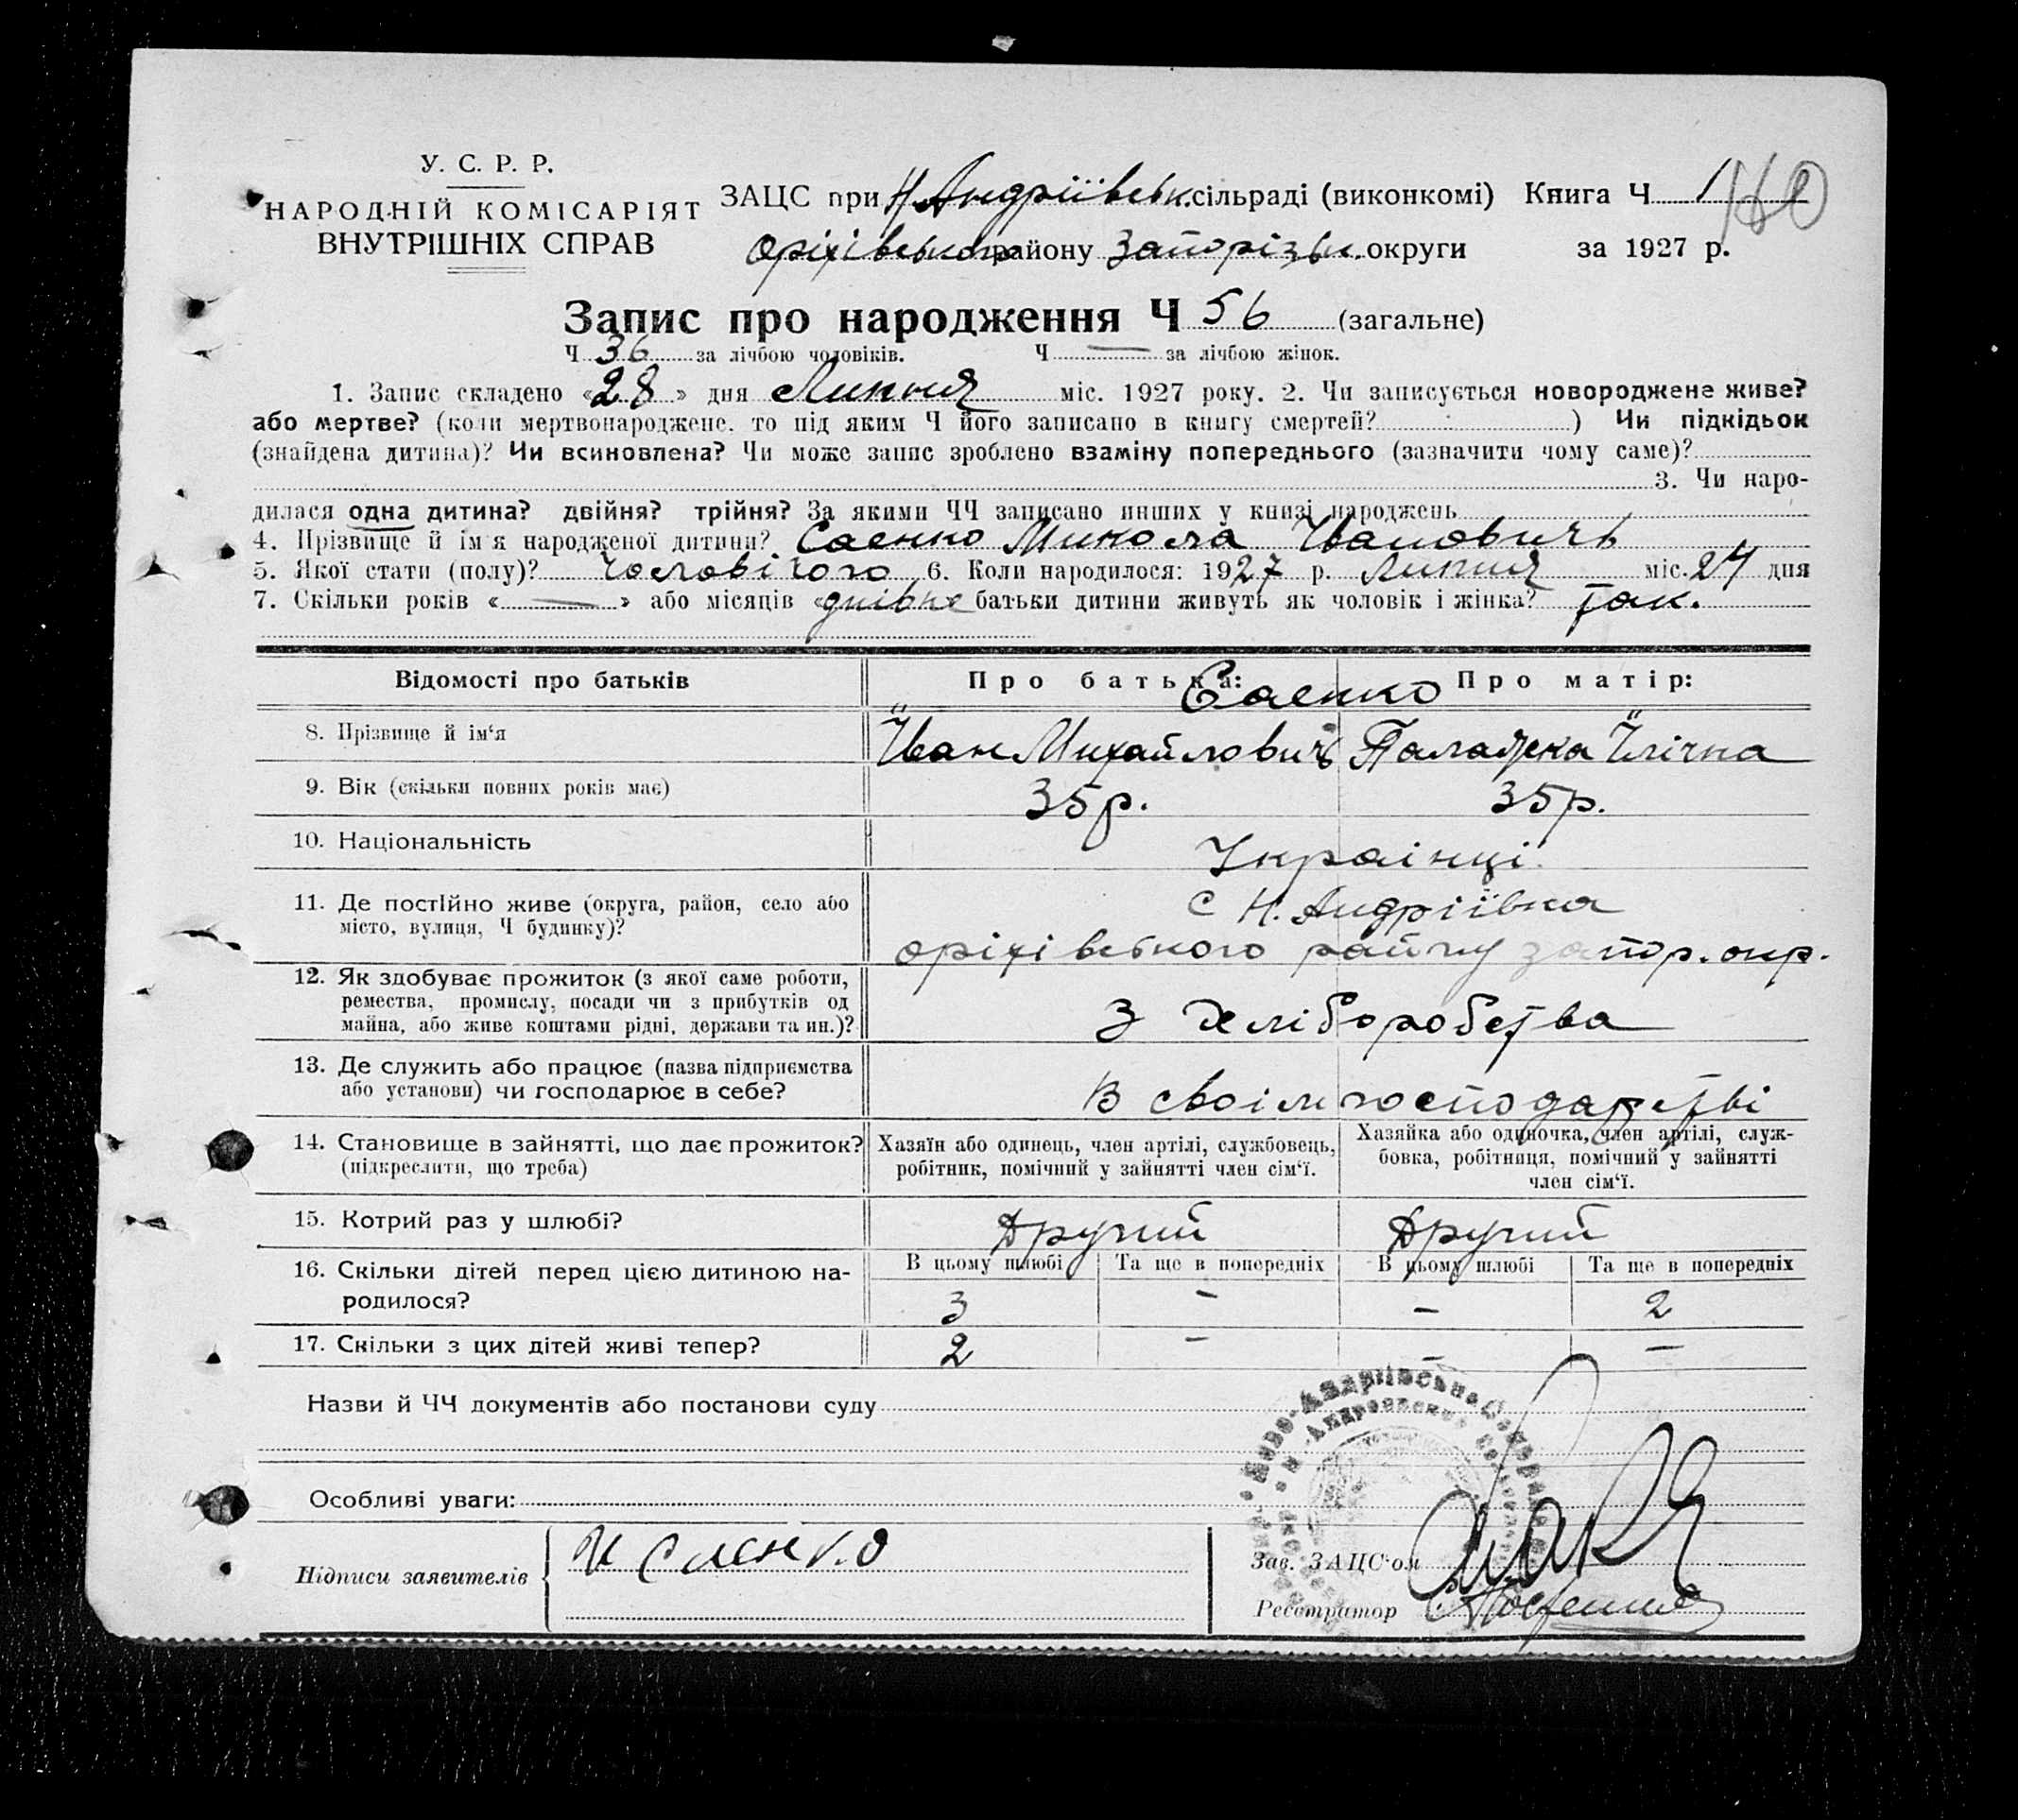 У. С. Р. Р.
НАРОДНІЙ КОМІСАРІЯТ
ВНУТРІШНІХ СПРАВ
ЗАЦС при Н. Андріївськ. сільраді (виконкомі) Книга Ч 1
160
Оріхівського району Запорізьк. округи за 1927 р.
Запис про народження Ч 56 (загальне)
Ч 36 за лічбою чоловіків. Ч — за лічбою жінок.
1. Запис складено «28» дня Липня міс. 1927 року. 2. Чи записується новороджене живе?
або мертве? (коли мертвонароджене. то під яким Ч його записано в книгу смертей? ) Чи підкідьок
(знайдена дитина)? Чи всиновлена? Чи може запис зроблено взаміну попереднього (зазначити чому саме)?
3. Чи наро-
дилася одна дитина? двійня? трійня? За якими ЧЧ записано инших у книзі народжень
4. Прізвище й ім'я народженої дитини? Саенко Микола Івановичъ
5. Якої стати (полу)? Чоловічого 6. Коли народилося: 1927 р. Липня міс. 24 дня
7. Скільки років « — » або місяців « батьки дитини живуть як чоловік і жінка? так.
Відомості про батьків Про батька: Про матір:
Саенко
8. Прізвище й ім'я Їван Михайловичъ Палажка Їлічна
9. Вік (скільки повних років має) 35 р. 35 р.
10. Національність Українці
11. Де постійно живе (округа, район, село або
місто, вулиця, Ч будинку)?
с Н. Андріївка
оріхівського району запор. окр.
12. Як здобуває прожиток (з якої саме роботи,
ремества, промислу, посади чи з прибутків од
майна, або живе коштами рідні, держави та ин.)?
З Хліборобства
13. Де служить або працює (назва підприємства
або установи) чи господарює в себе?
В своїм господарстві
14. Становище в зайнятті, що дає прожиток?
(підкреслити, що треба)
Хазяїн або одинець, член артілі, службовець,
робітник, помічний у зайнятті член сім'ї.
Хазяйка або одиночка, член артілі, служ-
бовка, робітниця, помічний у зайнятті
член сім'ї.
15. Котрий раз у шлюбі? Другий Другий
16. Скільки дітей перед цією дитиною на-
родилося?
В цьому шлюбі Та ще в попередніх В цьому шлюбі Та ще в попередніх
3 – – 2
17. Скільки з цих дітей живі тепер? 2 – – –
Назви й ЧЧ документів або постанови суду
Особливі уваги:
Підписи заявителів И Саенко
Зав. ЗАЦС'ом
Реєстратор